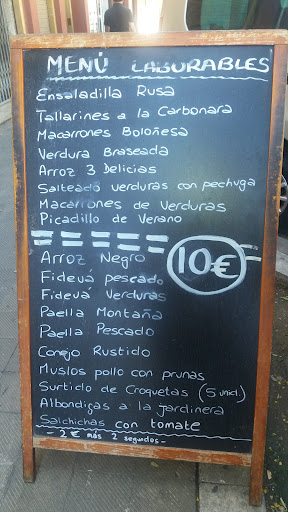 MENÚ LABORABLES
Ensaladilla Rusa
Tallarines a la Carbonara
Macarrones Boloñesa
Verdura Braseada
Arroz 3 Delicias
Salteado verduras con pechuga
Macarrones de Verduras
Picadillo de Verano
10€
Arroz Negro
Fidevá pescado
Fidevá Verduras
Paella Montaña
Paella Pescado
Conejo Rustido
Muslos pollo con prunas
Surtido de Croquetas (5 unid.)
Albondigas a la jardinera
Salchichas con tomate
- 2€ más 2 segundos -